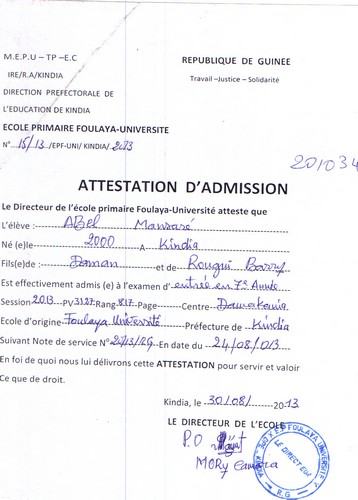 M.E.P.U – TP –E.C
REPUBLIQUE DE GUINEE
IRE/R.A/KINDIA
Travail –Justice – Solidarité
DIRECTION PREFECTORALE DE
L'EDUCATION DE KINDIA
ECOLE PRIMAIRE FOULAYA-UNIVERSITE
N° 15/13 /EPF-UNI/ KINDIA/ 2013
201034
ATTESTATION D'ADMISSION
Le Directeur de l'école primaire Foulaya-Université atteste que
L'élève : ABel Mansaré
Né (e)le 2000 A Kindia
Fils(e)de : Daman et de Rougui Barry
Est effectivement admis (e) à l'examen d'entrée en 7e Année
Session 2013 PV 3127 Rang 817 Page Centre Damakania
Ecole d'origine Foulaya Université Préfecture de Kindia
Suivant Note de service N° 2013/RG En date du 24/08/013
En foi de quoi nous lui délivrons cette ATTESTATION pour servir et valoir
Ce que de droit.
Kindia, le 30/08/ 2013
LE DIRECTEUR DE L'ECOLE
P.O
MORY Camara
LE DIRECTEUR
R.G